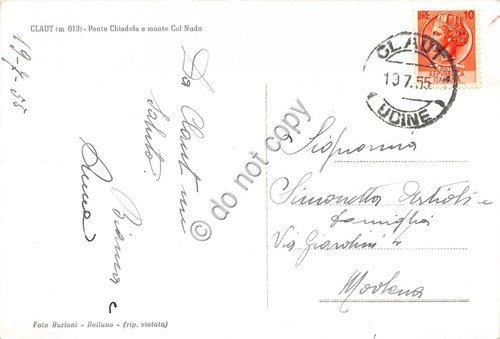 CLAUT (m. 613) - Ponte Chiadola e monte Col Nudo
19-7-55
Da Claut un
saluto.
Bianca e
Anna
Foto Burloni - Belluno - (rip. vietata)
LIRE 10
CLAUT
19.7.55
(UDINE)
Signorina
Simonetta Artioli e
famiglia
Via Giardini 4
Modena
do not copy